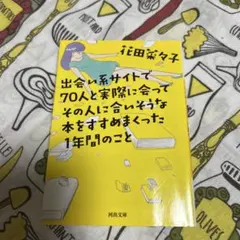 花田菜々子
出会い系サイトで
70人と実際に会って
その人に合いそうな
本をすすめまくった
1年間のこと
河出文庫
OLIVES